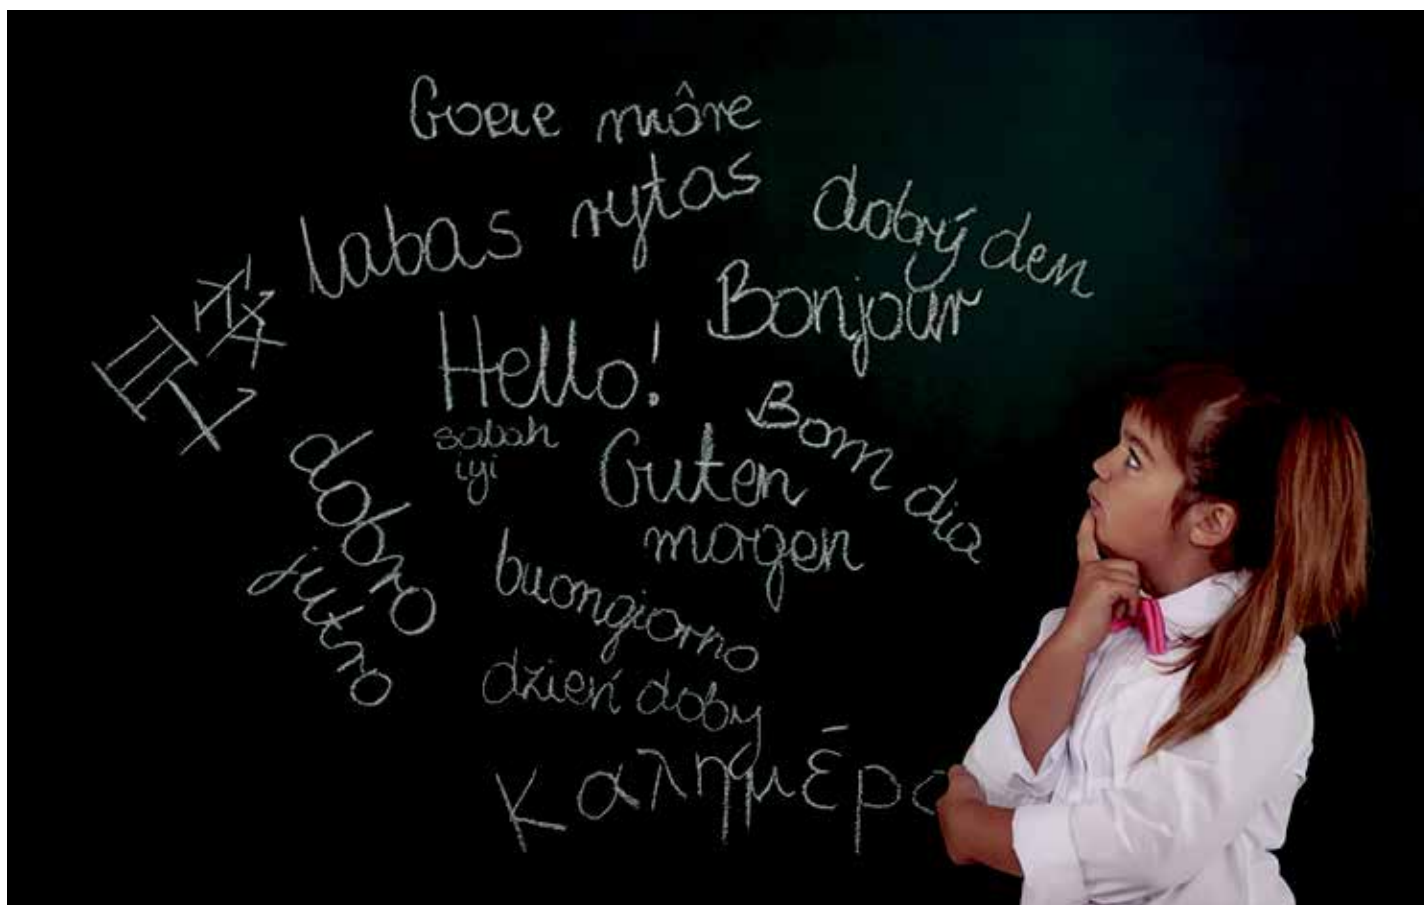 Goeie môre
labas rytas
dobrý den
Bonjour
Hello!
Bom dia
sabah
iyi
Guten
morgen
dobro
jutro
buongiorno
dzień doby
Καλημέρα